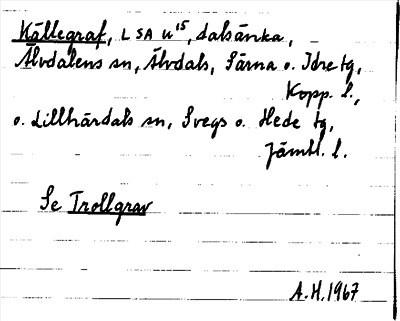 Källegraf, LSA u¹⁵, dalsänka,
Älvdalens sn, Älvdals, Särna o. Idre tg,
Kopp. l.,
o. Lillhärdals sn, Svegs o. Hede tg,
Jämtl. l.
Se Trollgrav
A.H. 1967